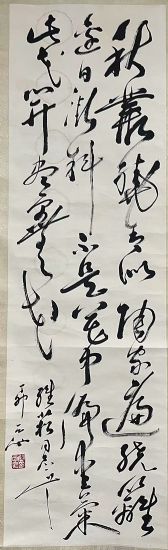 秋叢繞舍似陶家遍繞籬
邊日漸斜不是花中偏愛菊
此花開盡更無花
同志